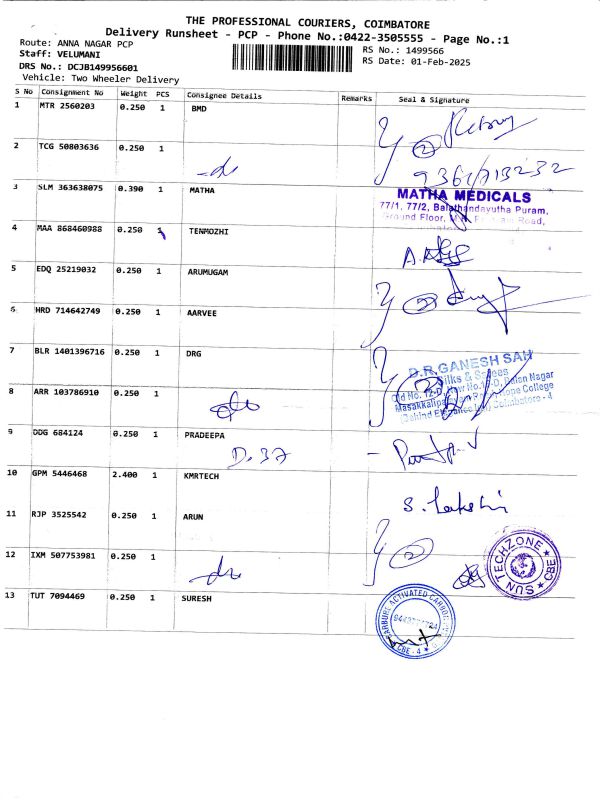 THE PROFESSIONAL COURIERS, COIMBATORE
Delivery Runsheet - PCP - Phone No.:0422-3505555 - Page No.:1
Route: ANNA NAGAR PCP
RS No.: 1499566
Staff: VELUMANI
RS Date: 01-Feb-2025
DRS No.: DCJB149956601
Vehicle: Two Wheeler Delivery
S No Consignment No Weight PCS Consignee Details Remarks Seal & Signature
1 MTR 2560203 0.250 1 BMD
2
2 TCG 50803636 0.250 1
3 SLM 363638075 0.390 1 MATHA
MATHA MEDICALS
77/1, 77/2, Balathandayutha Puram,
Ground Floor, Road,
4 MAA 868460988 0.250 1 TENMOZHI
5 EDQ 25219032 0.250 1 ARUMUGAM
2
6 HRD 714642749 0.250 1 AARVEE
7 BLR 1401396716 0.250 1 DRG
D.R.GANESH SAH
Silks & Sarees
Old No. 12-D, New No. Balan Nagar
Masakkalipalayam College
Behind Coimbatore - 4
8 ARR 103786910 0.250 1
9 DDG 684124 0.250 1 PRADEEPA
D.37
10 GPM 5446468 2.400 1 KMRTECH
S. Lakshi
11 RJP 3525542 0.250 1 ARUN
2
SUN TECHZONE ★ CBE ★
12 IXM 507753981 0.250 1
13 TUT 7094469 0.250 1 SURESH
ACTIVATED CARBON
CBE - 4